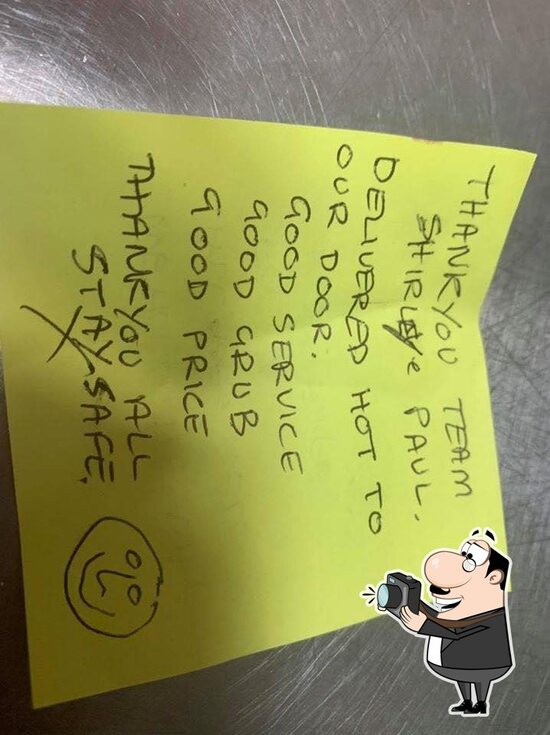 THANKYOU TEAM
SHIRLEY PAUL.
DELIVERED HOT TO
OUR DOOR.
GOOD SERVICE
GOOD GRUB
GOOD PRICE
THANKYOU ALL
STAY SAFE.